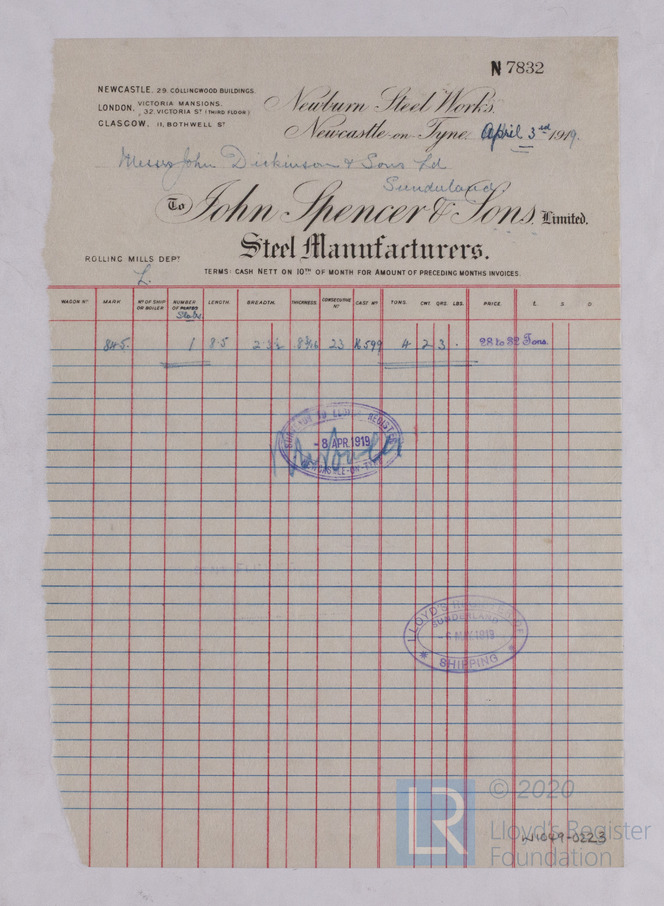 N 7832
NEWCASTLE. 29. COLLINGWOOD BUILDINGS.
LONDON, VICTORIA MANSIONS. 32, VICTORIA ST (THIRD FLOOR)
GLASGOW, 11, BOTHWELL ST
Newburn Steel Works,
Newcastle-on-Tyne. April 3rd 1919.
Messrs John Dickinson & Sons Ld
Sunderland
To John Spencer & Sons, Limited.
Steel Manufacturers.
ROLLING MILLS DEPT
L.
TERMS: CASH NETT ON 10TH OF MONTH FOR AMOUNT OF PRECEDING MONTHS INVOICES.
WAGON No. MARK No. OF SHIP OR BOILER NUMBER OF PLATES Slabs LENGTH. BREADTH. THICKNESS. CONSECUTIVE No. CAST No. TONS. CWT. QRS. LBS. PRICE. £ S D
845. 1 8.5 2.3½ 23 4 2 3 . 28 to 32 Tons.
LLOYD'S REGISTER
- 8 APR. 1919
NEWCASTLE-ON-TYNE
LLOYD'S REGISTER OF
SUNDERLAND
MAY 1919
SHIPPING
LR
© 2020
Lloyd's Register
Foundation
W1049-0223